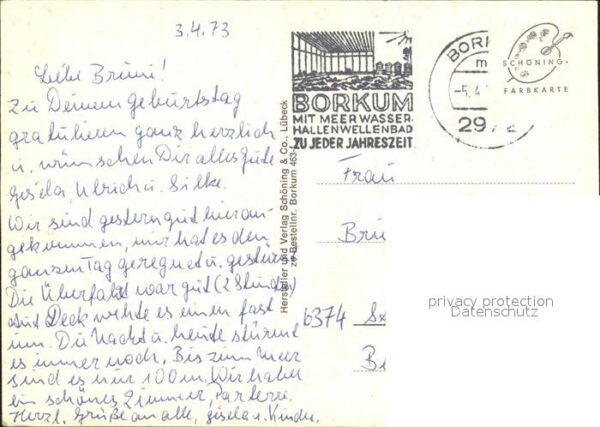 3.4.73
Liebe Brüni!
Zu Deinem Geburtstag
gratulieren ganz herzlich
u. wünschen Dir alles Gute
Gisela, Ulrich u. Silke.
Wir sind gestern gut hier an-
gekommen, nur hat es den
ganzen Tag geregnet u. gestürmt
Die Überfahrt war gut (2 Stunden)
auf Deck wehte es einen fast
um. Die Nacht u. heute stürmt
es immer noch. Bis zum Meer
sind es nur 100 m. Wir haben
ein schönes Zimmer, Parterre.
Herzl. Grüße an alle, Gisela u. Kinder.
Hersteller und Verlag Schöning & Co., Lübeck
zu Bestellnr. Borkum 463
BORKUM
MIT MEERWASSER-
HALLENWELLENBAD
ZU JEDER JAHRESZEIT
BOR
-5.4.
297
SCHÖNING-
FARBKARTE
Frau
Brü
6374
privacy protection
Datenschutz